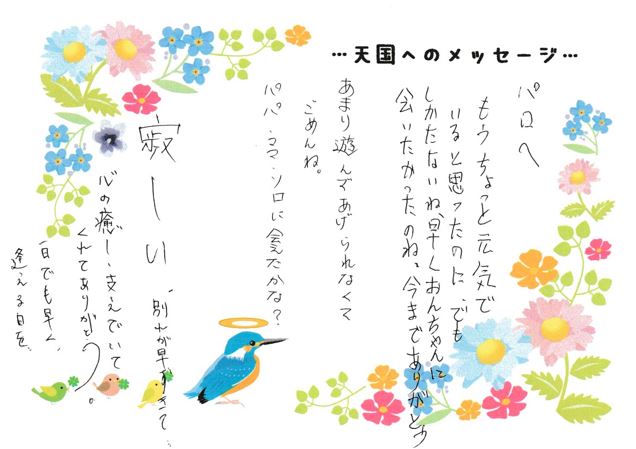 …天国へのメッセージ…
パロへ
もうちょっと元気で
いると思ったのに、でも
しかたないね、早くおんちゃんに
会いたかったのね。今までありがとう
あまり遊んであげられなくて
ごめんね。
パパ、ママ、ソロに会えたかな?
寂しい、別れが早すぎて…
心の癒し、支えでいて
くれてありがとう。
一日でも早く、
逢える日を、